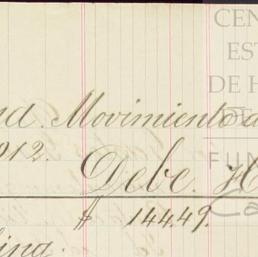 CEN
EST
DE H
nd. Movimiento d
912. Debe. H
FUN
$ 14449.
ling.